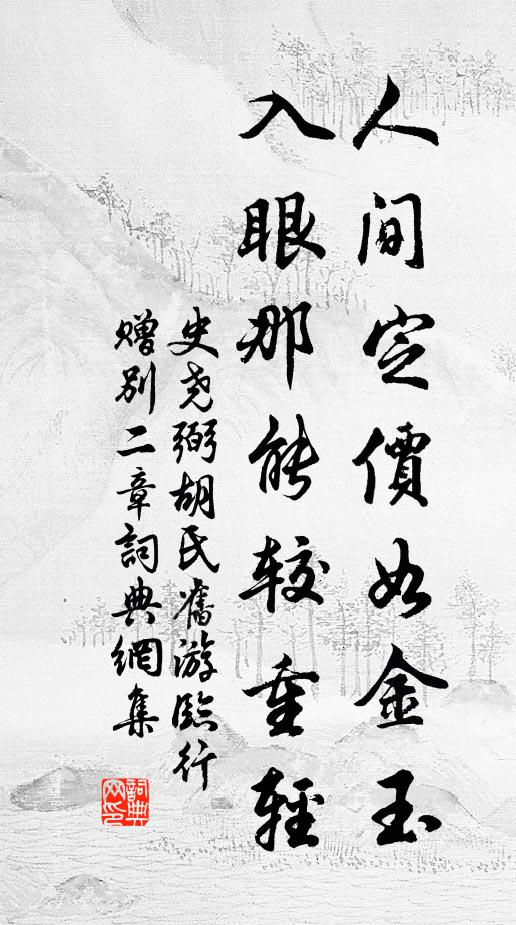 人间定價如金玉
入眼那能較重輕
史尧弼胡氏舊游臨行
贈别二章詞典網集
詞典
网印